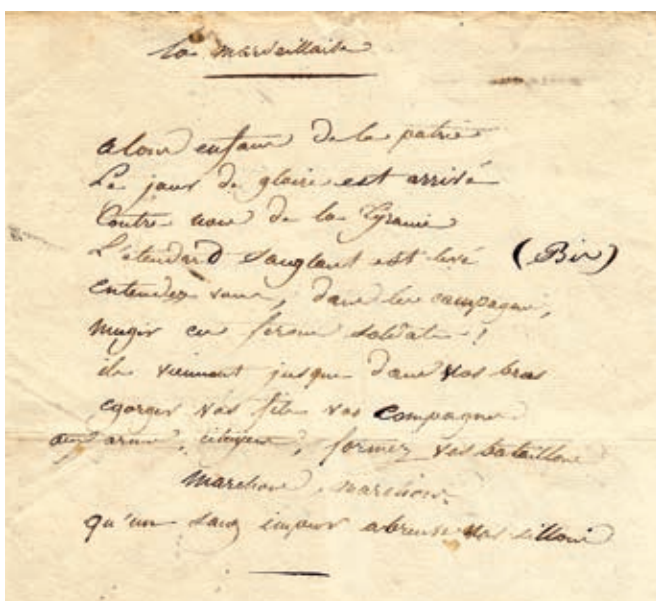 la marseillaise
alons enfans de la patrie
Le jour de gloire est arrivé
Contre nous de la tyranie
L'étendard sanglant est levé (Bis)
entendez vous, dans les campagnes,
mugir ces feroces soldats !
ils viennent jusque dans vos bras
egorger vos fils vos compagnes
aux armes, citoyens, formez vos bataillons
marchons, marchons,
qu'un sang impur abreuve nos sillons